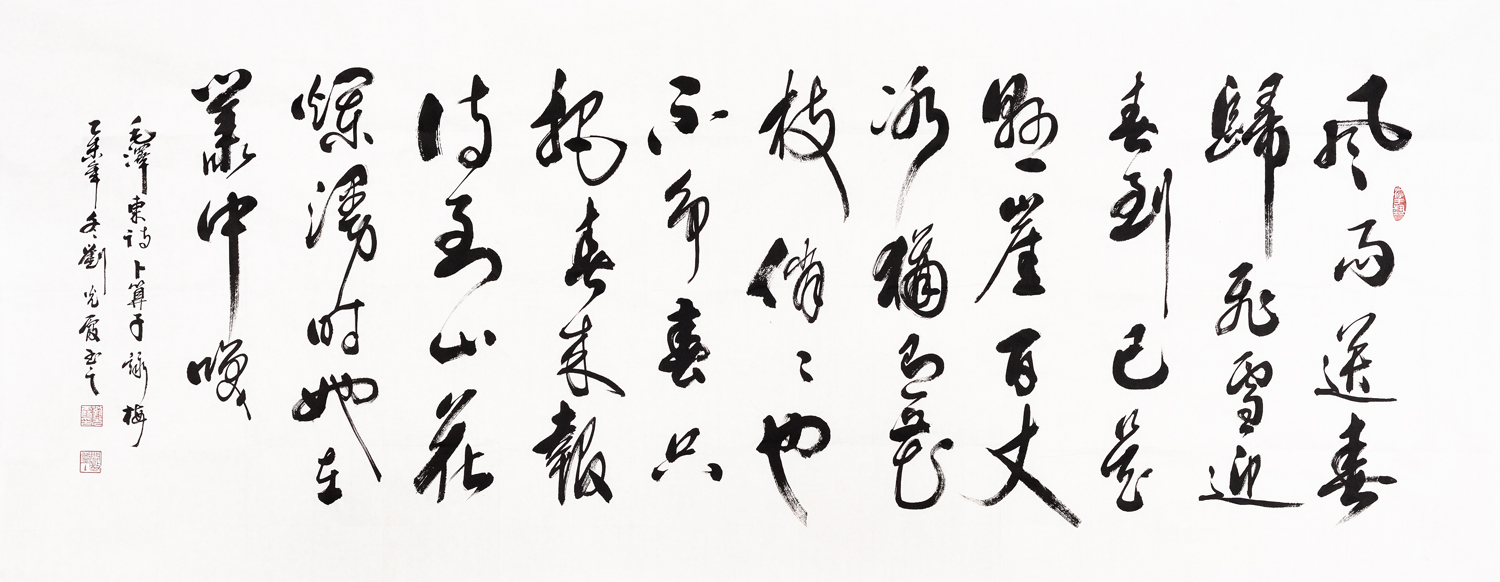 風雨送春
歸飛雪迎
春到已是
懸崖百丈
冰猶有花
枝俏〻也
不爭春只
把春來報
待到山花
爛漫時她在
叢中咲
毛澤東詩卜算子詠梅
乙未年冬劉光霞書之